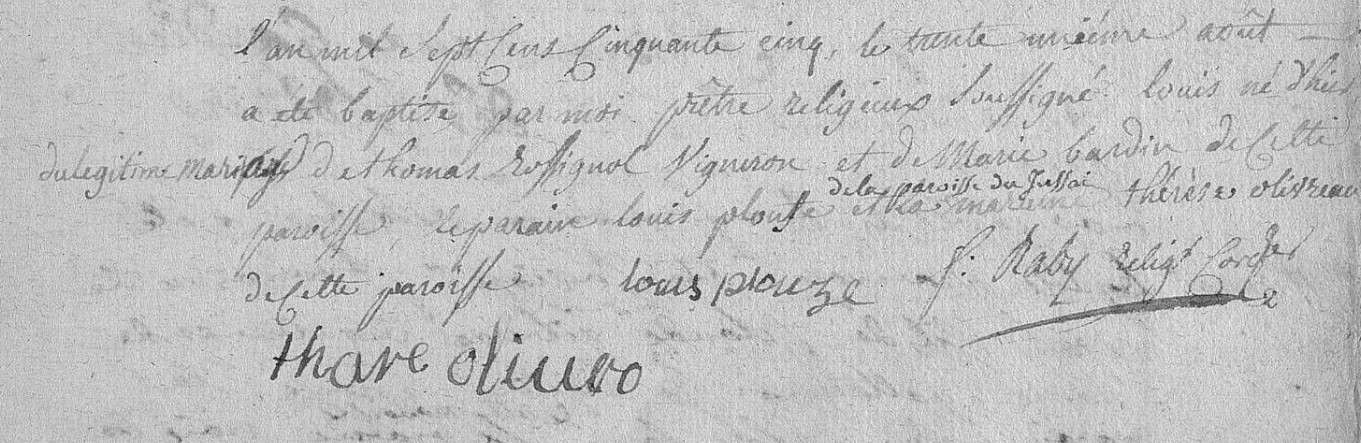 l'an mil Sept Cens Cinquante cinq, le trente uniéme août
a été baptisé par moi prêtre religieux Soussigné louis né d'hier
du legitime mariage de thomas rossignol Vigneron et de Marie bardin de Cette
de la paroisse du Jussai
paroisse, le parain louis plouse et la mareine thérèse olivreau
de Cette paroisse louis plouze f: Raby relig.x Cord.er
thare oliuro